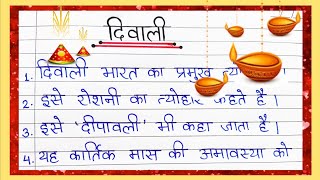 दिवाली
1. दिवाली भारत का प्रमुख
2. इसे रोशनी का त्योहार कहते है।
3. इसे 'दीपावली' भी कहा जाता है।
4. यह कार्तिक मास की अमावस्या को